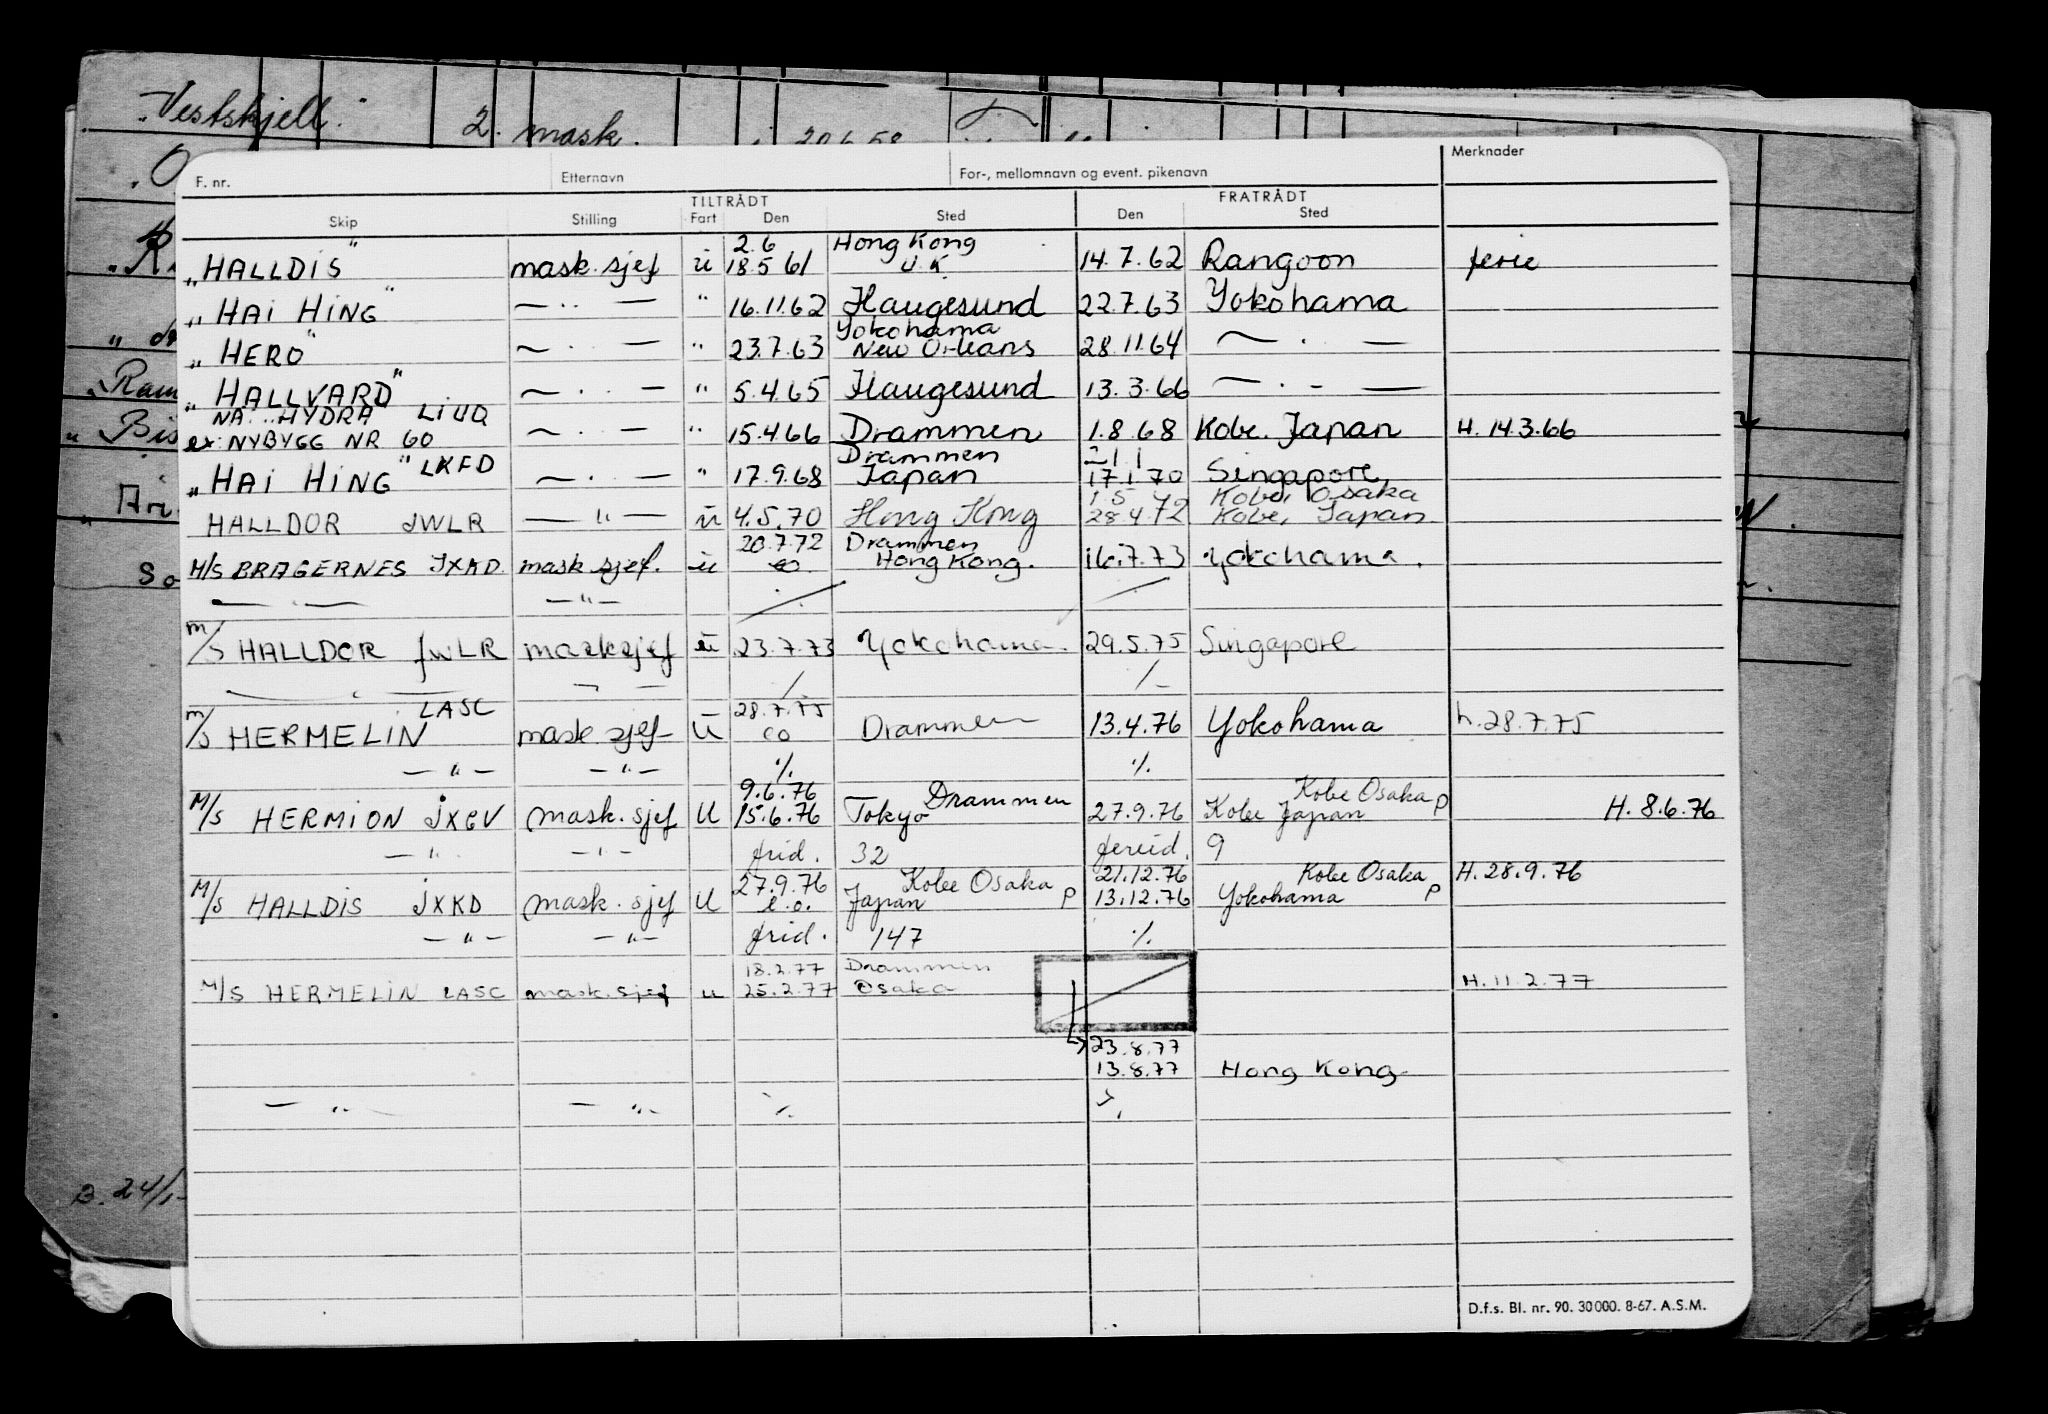 "Vestskjell" 2. mask. 20.6.58
F. nr. Etternavn For-, mellomnavn og event. pikenavn Merknader
TILTRÅDT FRATRÅDT
Skip Stilling Fart Den Sted Den Sted
2.6 Hong Kong
"HALLDIS" mask. sjef u 18.5 61 U.K. 14.7.62 Rangoon ferie
"HAI HING" — " — " 16.11.62 Haugesund 22.7.63 Yokohama
Yokohama
"HERO" — " — " 23.7.63 New Orleans 28.11.64 — " —
"HALLVARD" — " — " 5.4.65 Haugesund 13.3.66 — " —
NÅ: HYDRA LIUQ
ex: NYBYGG NR 60 — " — " 15.4.66 Drammen 1.8.68 Kobe, Japan H. 14.3.66
Drammen 21 1
"HAI HING" LKFD — " — " 17.9.68 Japan 17.1.70 Singapore
1.5 Kobe, Osaka
HALLDOR JWLR — " — u 4.5.70 Hong Kong 28.4.72 Kobe, Japan
20.7.72 Drammen
M/S BRAGERNES JXAD mask sjef. u eo. Hong Kong. 16.7.73 Yokohama.
— " — — " — ./. ./.
m/s HALLDOR JWLR masksjef u 23.7.73 Yokohama. 29.5.75 Singapore
— " — — " — ./. ./.
LASC 28.7.75
m/s HERMELIN mask sjef u eo Drammen 13.4.76 Yokohama h. 28.7.75
— " — — " — ./. ./.
9.6.76 Drammen Kobe Osaka p
M/S HERMION JXBV mask. sjef U 15.6.76 Tokyo 27.9.76 Kobe Japan H. 8.6.76
— " — — " — frid. 32 fereid. 9
27.9.76 Kobe Osaka p 21.12.76 Kobe Osaka p H. 28.9.76
M/S HALLDIS JXKD mask. sjef U e.o. Japan 13.12.76 Yokohama
— " — — " — frid. 147 ./.
18.2.77 Drammen
M/S HERMELIN LASC mask. sjef u 25.2.77 Osaka H. 11.2.77
23.8.77
13.8.77 Hong Kong
— " — — " — ./. ./.
B. 24/1-
D.f.s. Bl. nr. 90. 30000. 8-67. A.S.M.